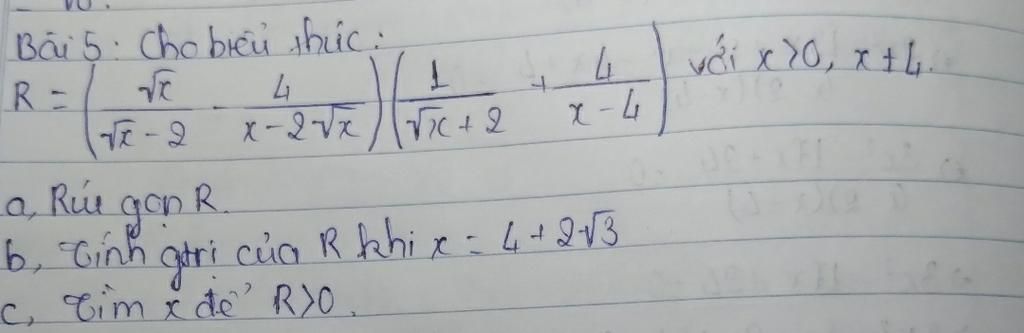 Bài 5: Cho biểu thức:
R = (√x/(√x - 2) - 4/(x - 2√x)) (1/(√x + 2) + 4/(x - 4)) với x>0, x ≠ 4.
a, Rút gọn R.
b, Tính gtri của R khi x = 4 + 2√3
c, Tìm x để R>0.